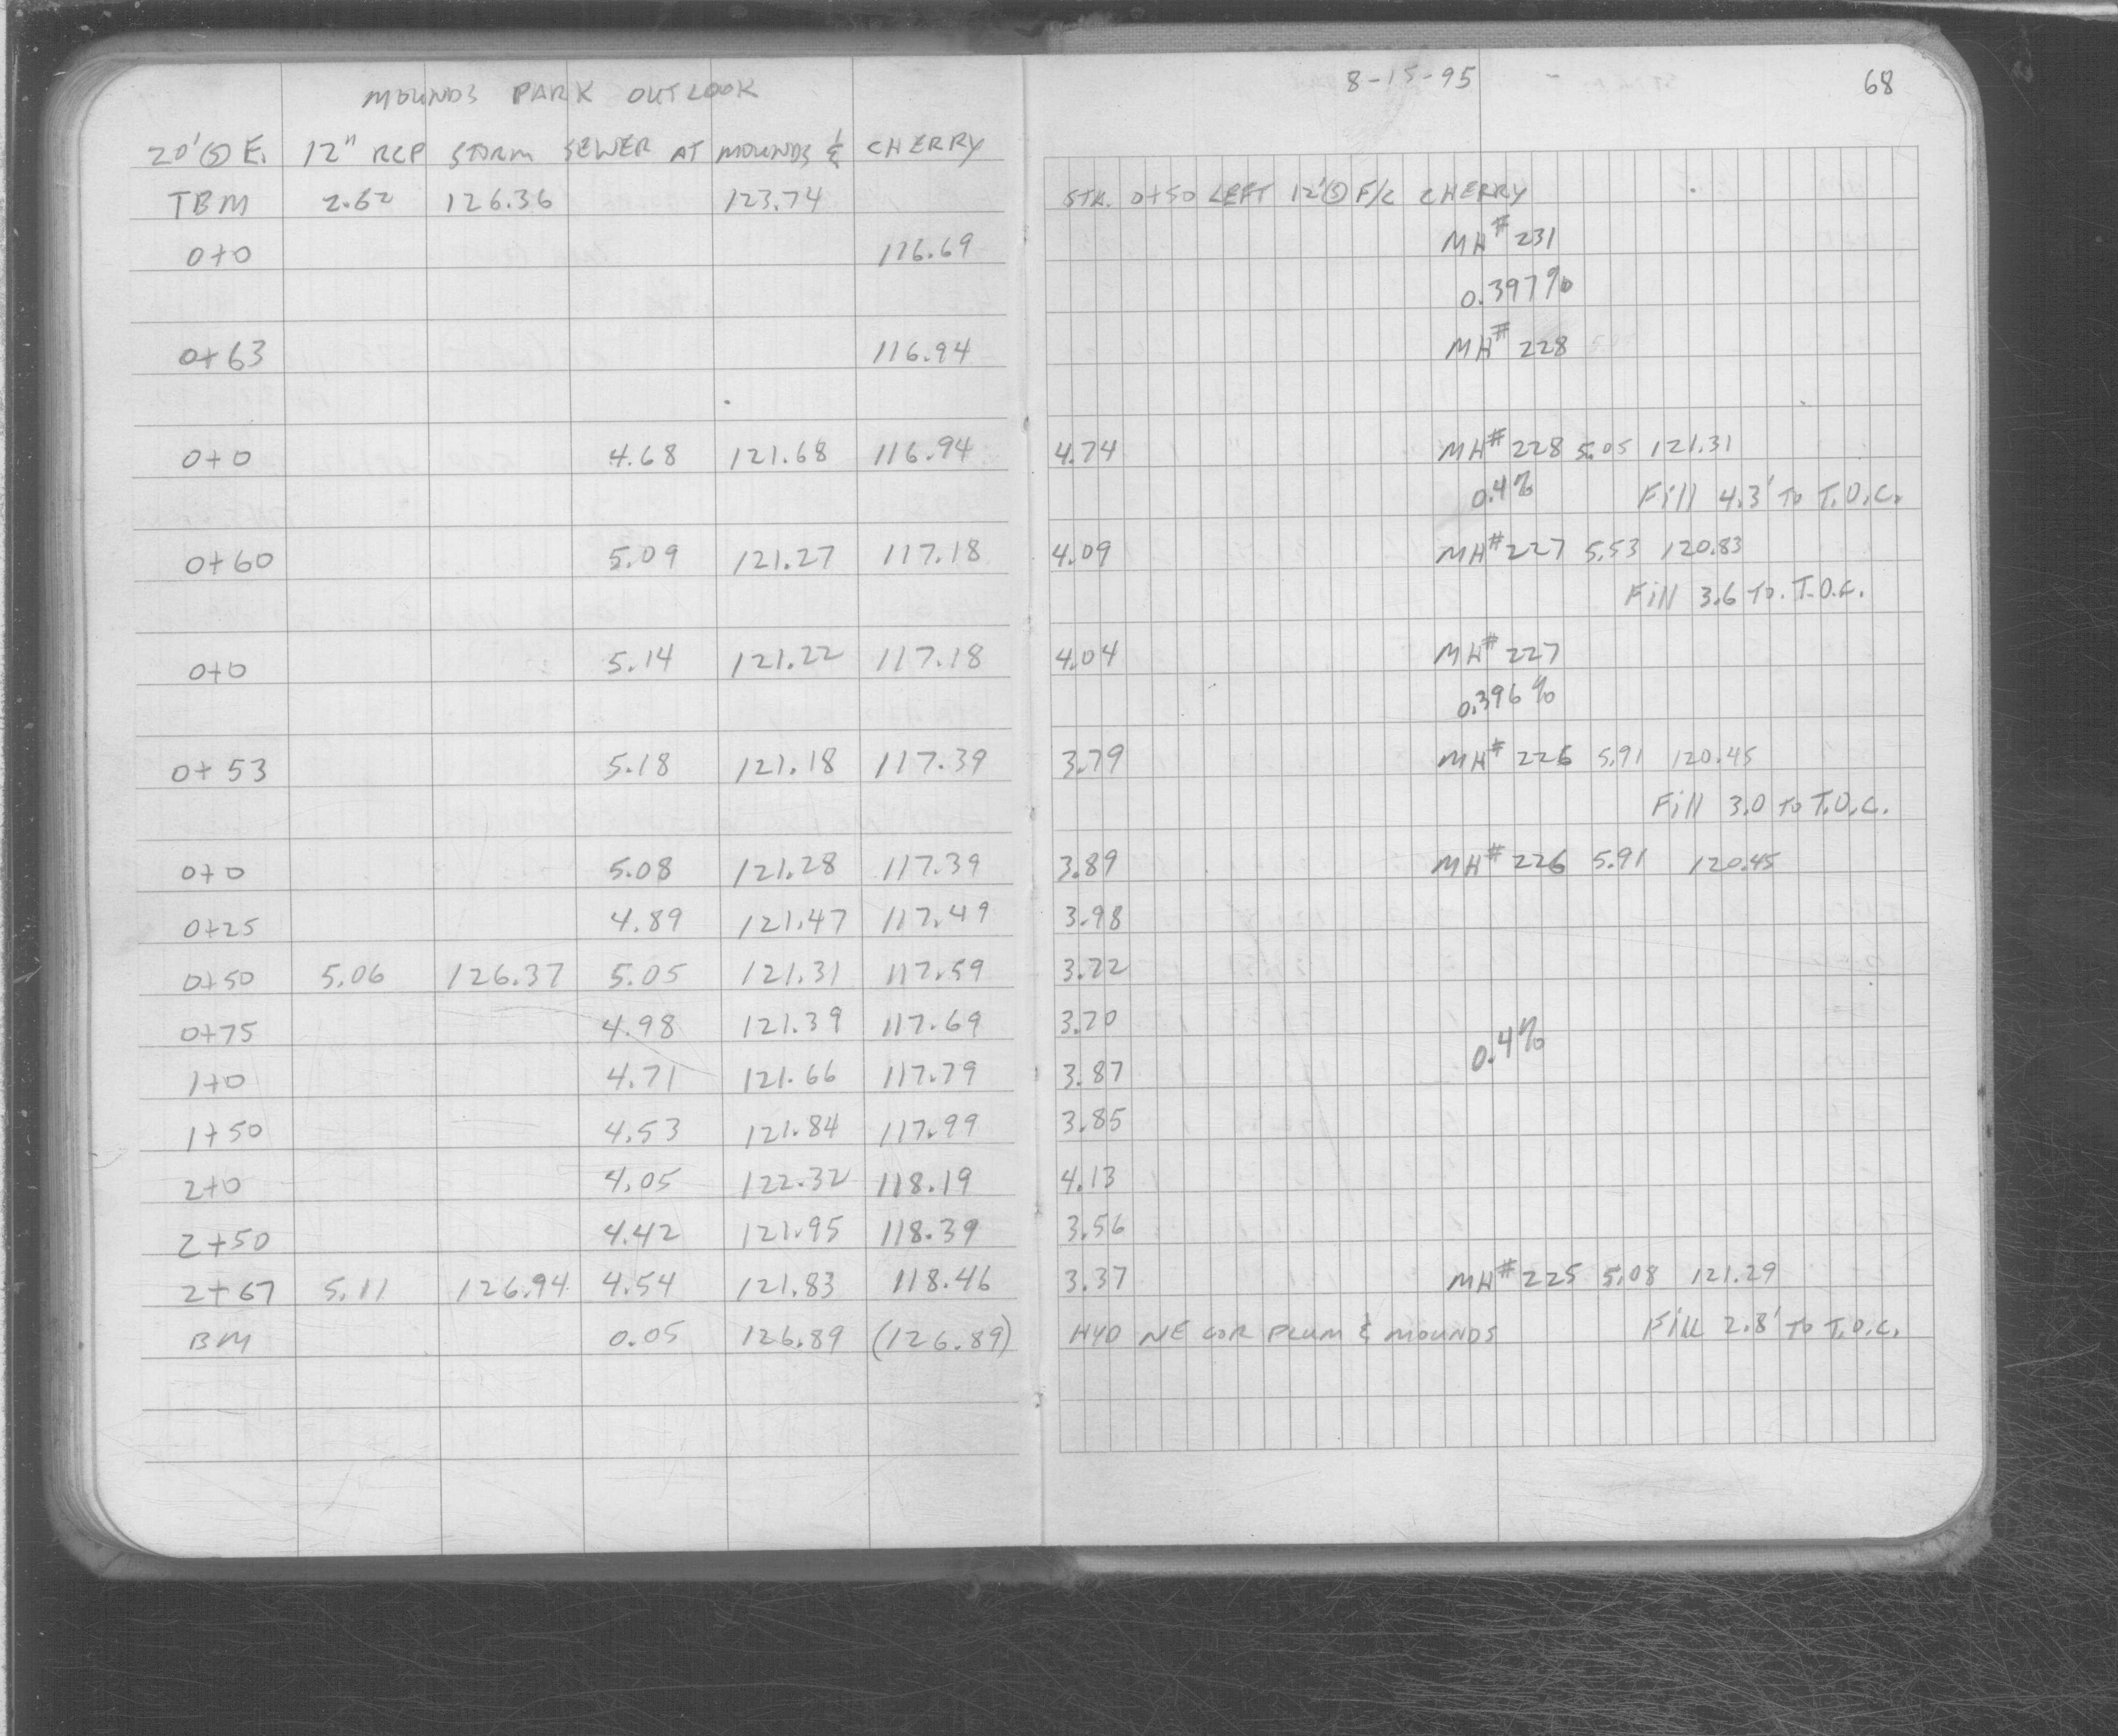 MOUNDS PARK OUTLOOK 8-15-95 68
20'Ⓢ E. 12" RCP STORM SEWER AT MOUNDS & CHERRY
TBM 2.62 126.36 123.74 STA. 0+50 LEFT 12'Ⓢ F/C CHERRY
0+0 116.69 MH# 231
0.397%
0+63 116.94 MH# 228
0+0 4.68 121.68 116.94 4.74 MH# 228 5.05 121.31
0.4% Fill 4.3' TO T.O.C.
0+60 5.09 121.27 117.18 4.09 MH# 227 5.53 120.83
Fill 3.6 TO. T.O.C.
0+0 5.14 121.22 117.18 4.04 MH# 227
0.396%
0+53 5.18 121.18 117.39 3.79 MH# 226 5.91 120.45
Fill 3.0 TO T.O.C.
0+0 5.08 121.28 117.39 3.89 MH# 226 5.91 120.45
0+25 4.89 121.47 117.49 3.98
0+50 5.06 126.37 5.05 121.31 117.59 3.72
0+75 4.98 121.39 117.69 3.70
0.4%
1+0 4.71 121.66 117.79 3.87
1+50 4.53 121.84 117.99 3.85
2+0 4.05 122.32 118.19 4.13
2+50 4.42 121.95 118.39 3.56
2+67 5.11 126.94 4.54 121.83 118.46 3.37 MH# 225 5.08 121.29
BM 0.05 126.89 (126.89) HYD NE COR PLUM & MOUNDS Fill 2.8' TO T.O.C.